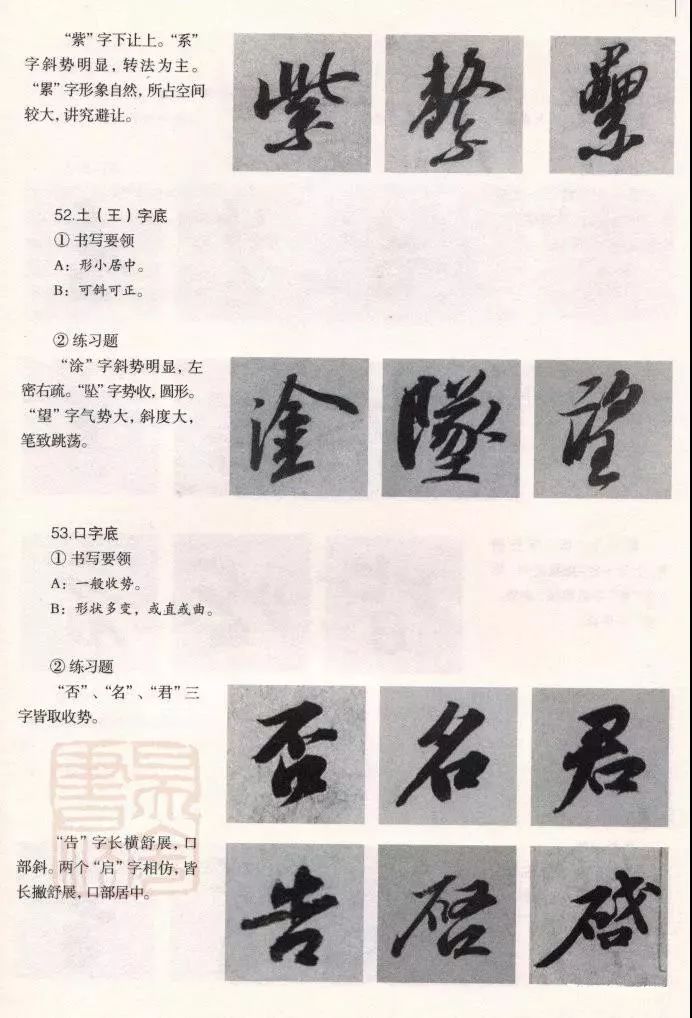 “紫”字下让上。“系”
字斜势明显，转法为主。
“累”字形象自然，所占空间
较大，讲究避让。
紫 繫 纍
52.土（王）字底
① 书写要领
A：形小居中。
B：可斜可正。
② 练习题
“涂”字斜势明显，左
密右疏。“坠”字势收，圆形。
“望”字气势大，斜度大，
笔致跳荡。
塗 墜 望
53.口字底
① 书写要领
A：一般收势。
B：形状多变，或直或曲。
② 练习题
“否”、“名”、“君”三
字皆取收势。
否 名 君
“告”字长横舒展，口
部斜。两个“启”字相仿，皆
长撇舒展，口部居中。
告 启 啓